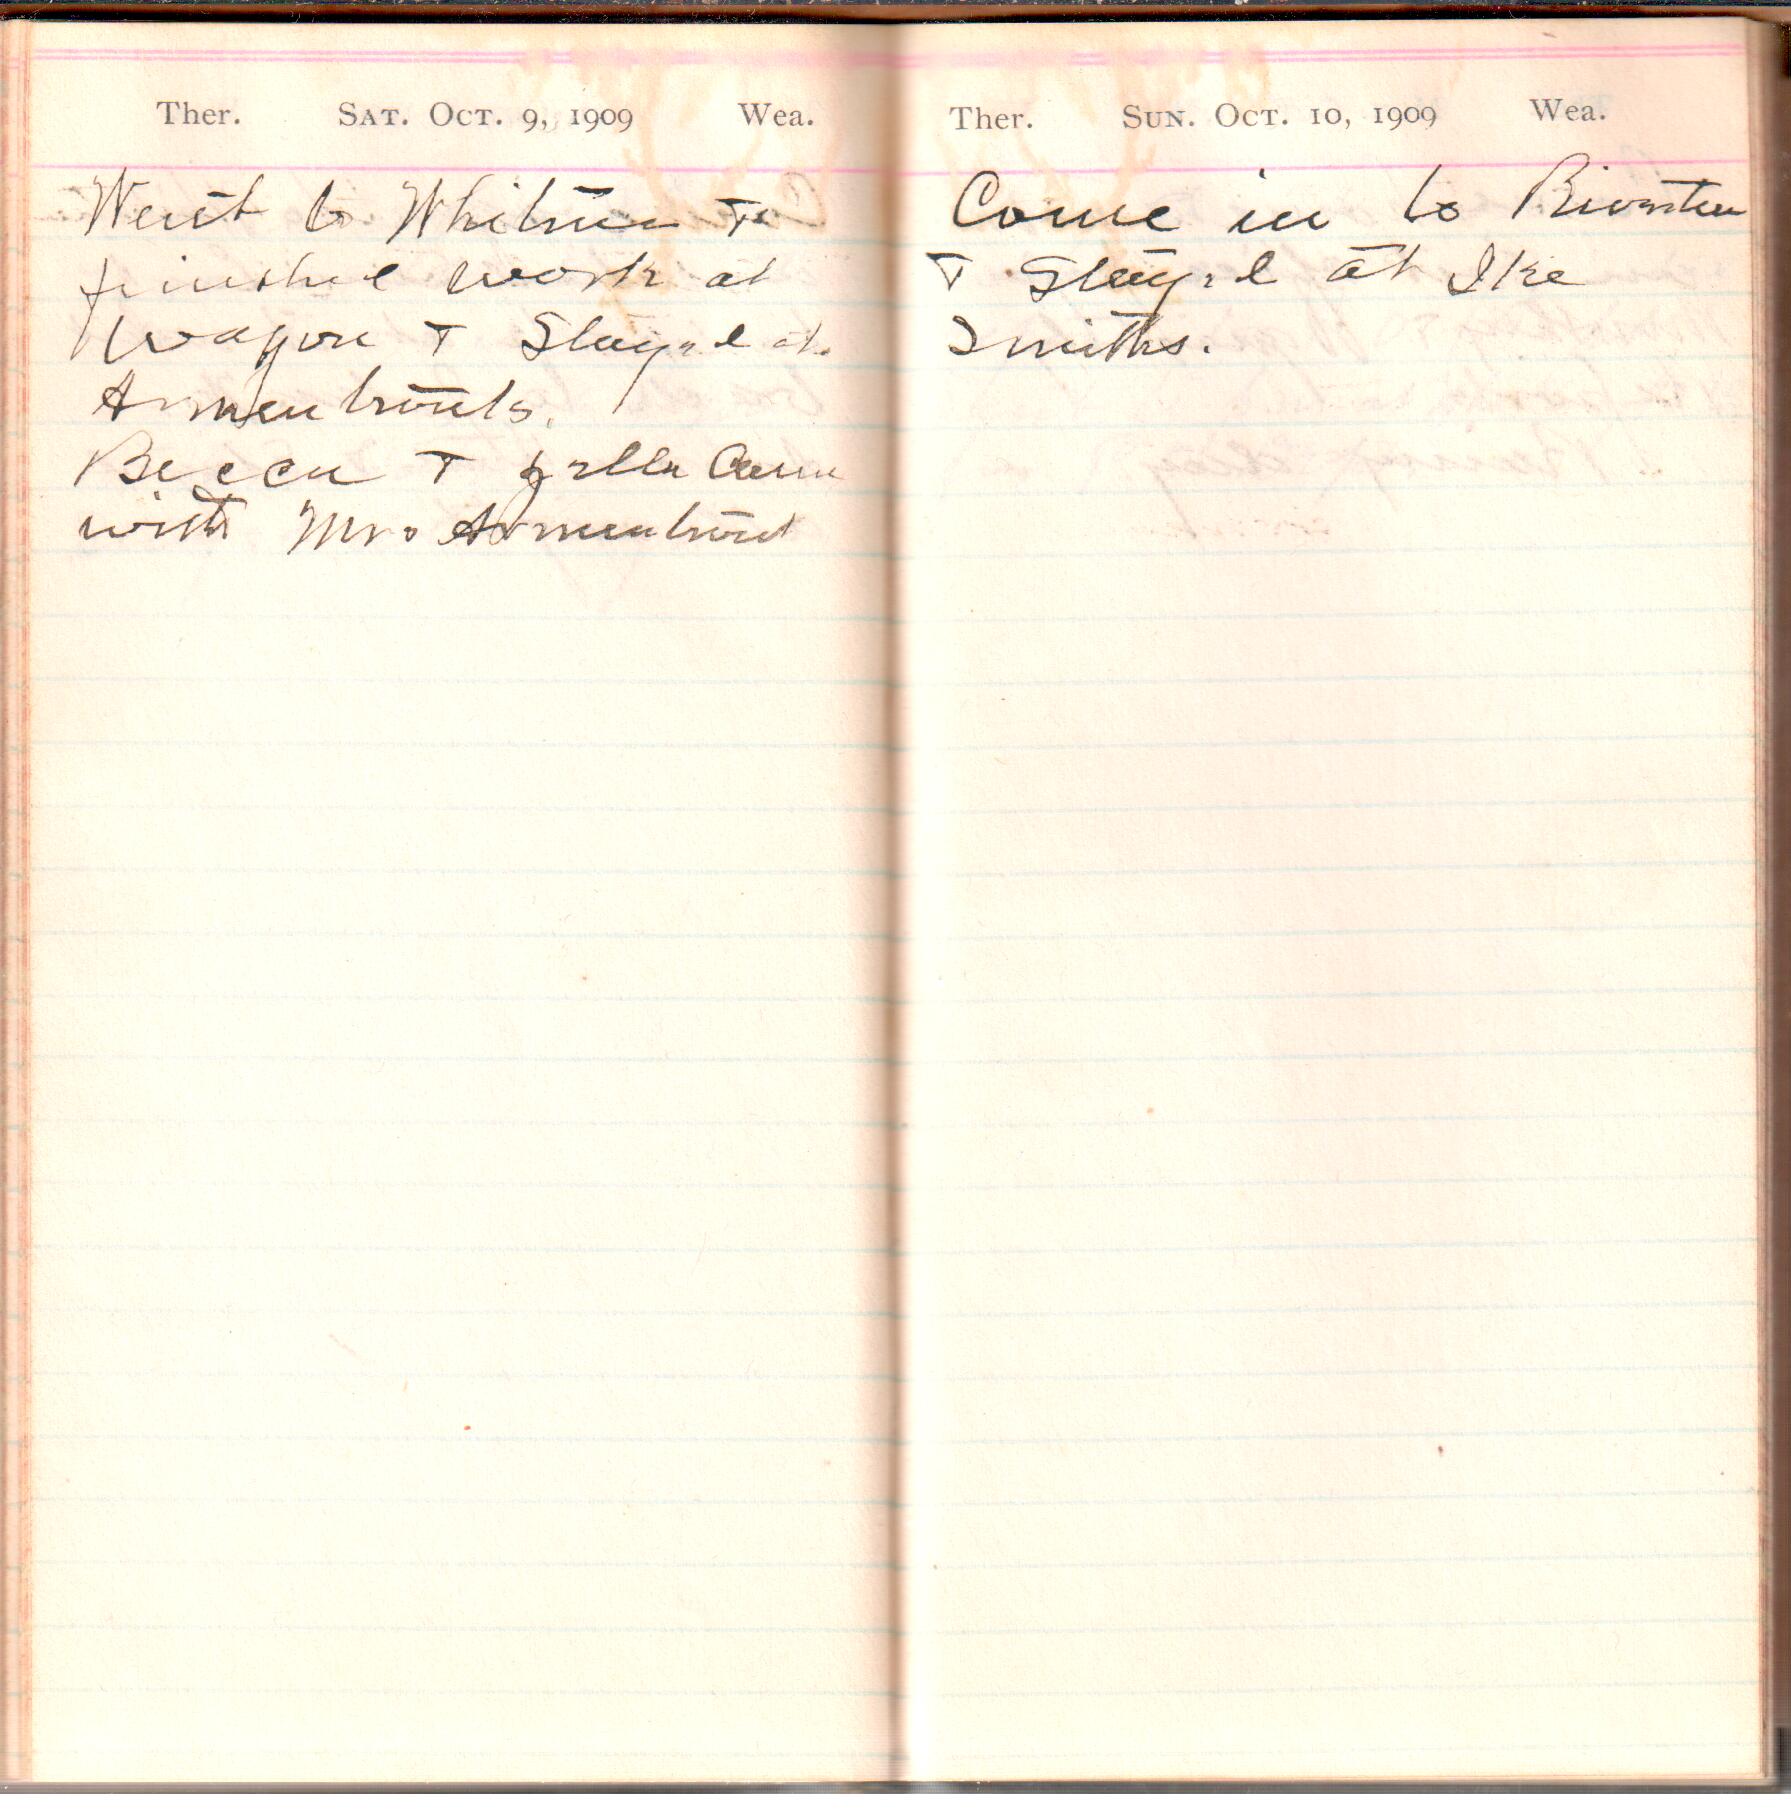 Ther. Sat. Oct. 9, 1909 Wea.
Went to Whitmer &
finished work at
Wagon & Stayed at
Armentrouts.
Becca & Zella Came
with Mrs Armentrout
Ther. Sun. Oct. 10, 1909 Wea.
Come in to Riverton
& Stayed at Ike
Smiths.